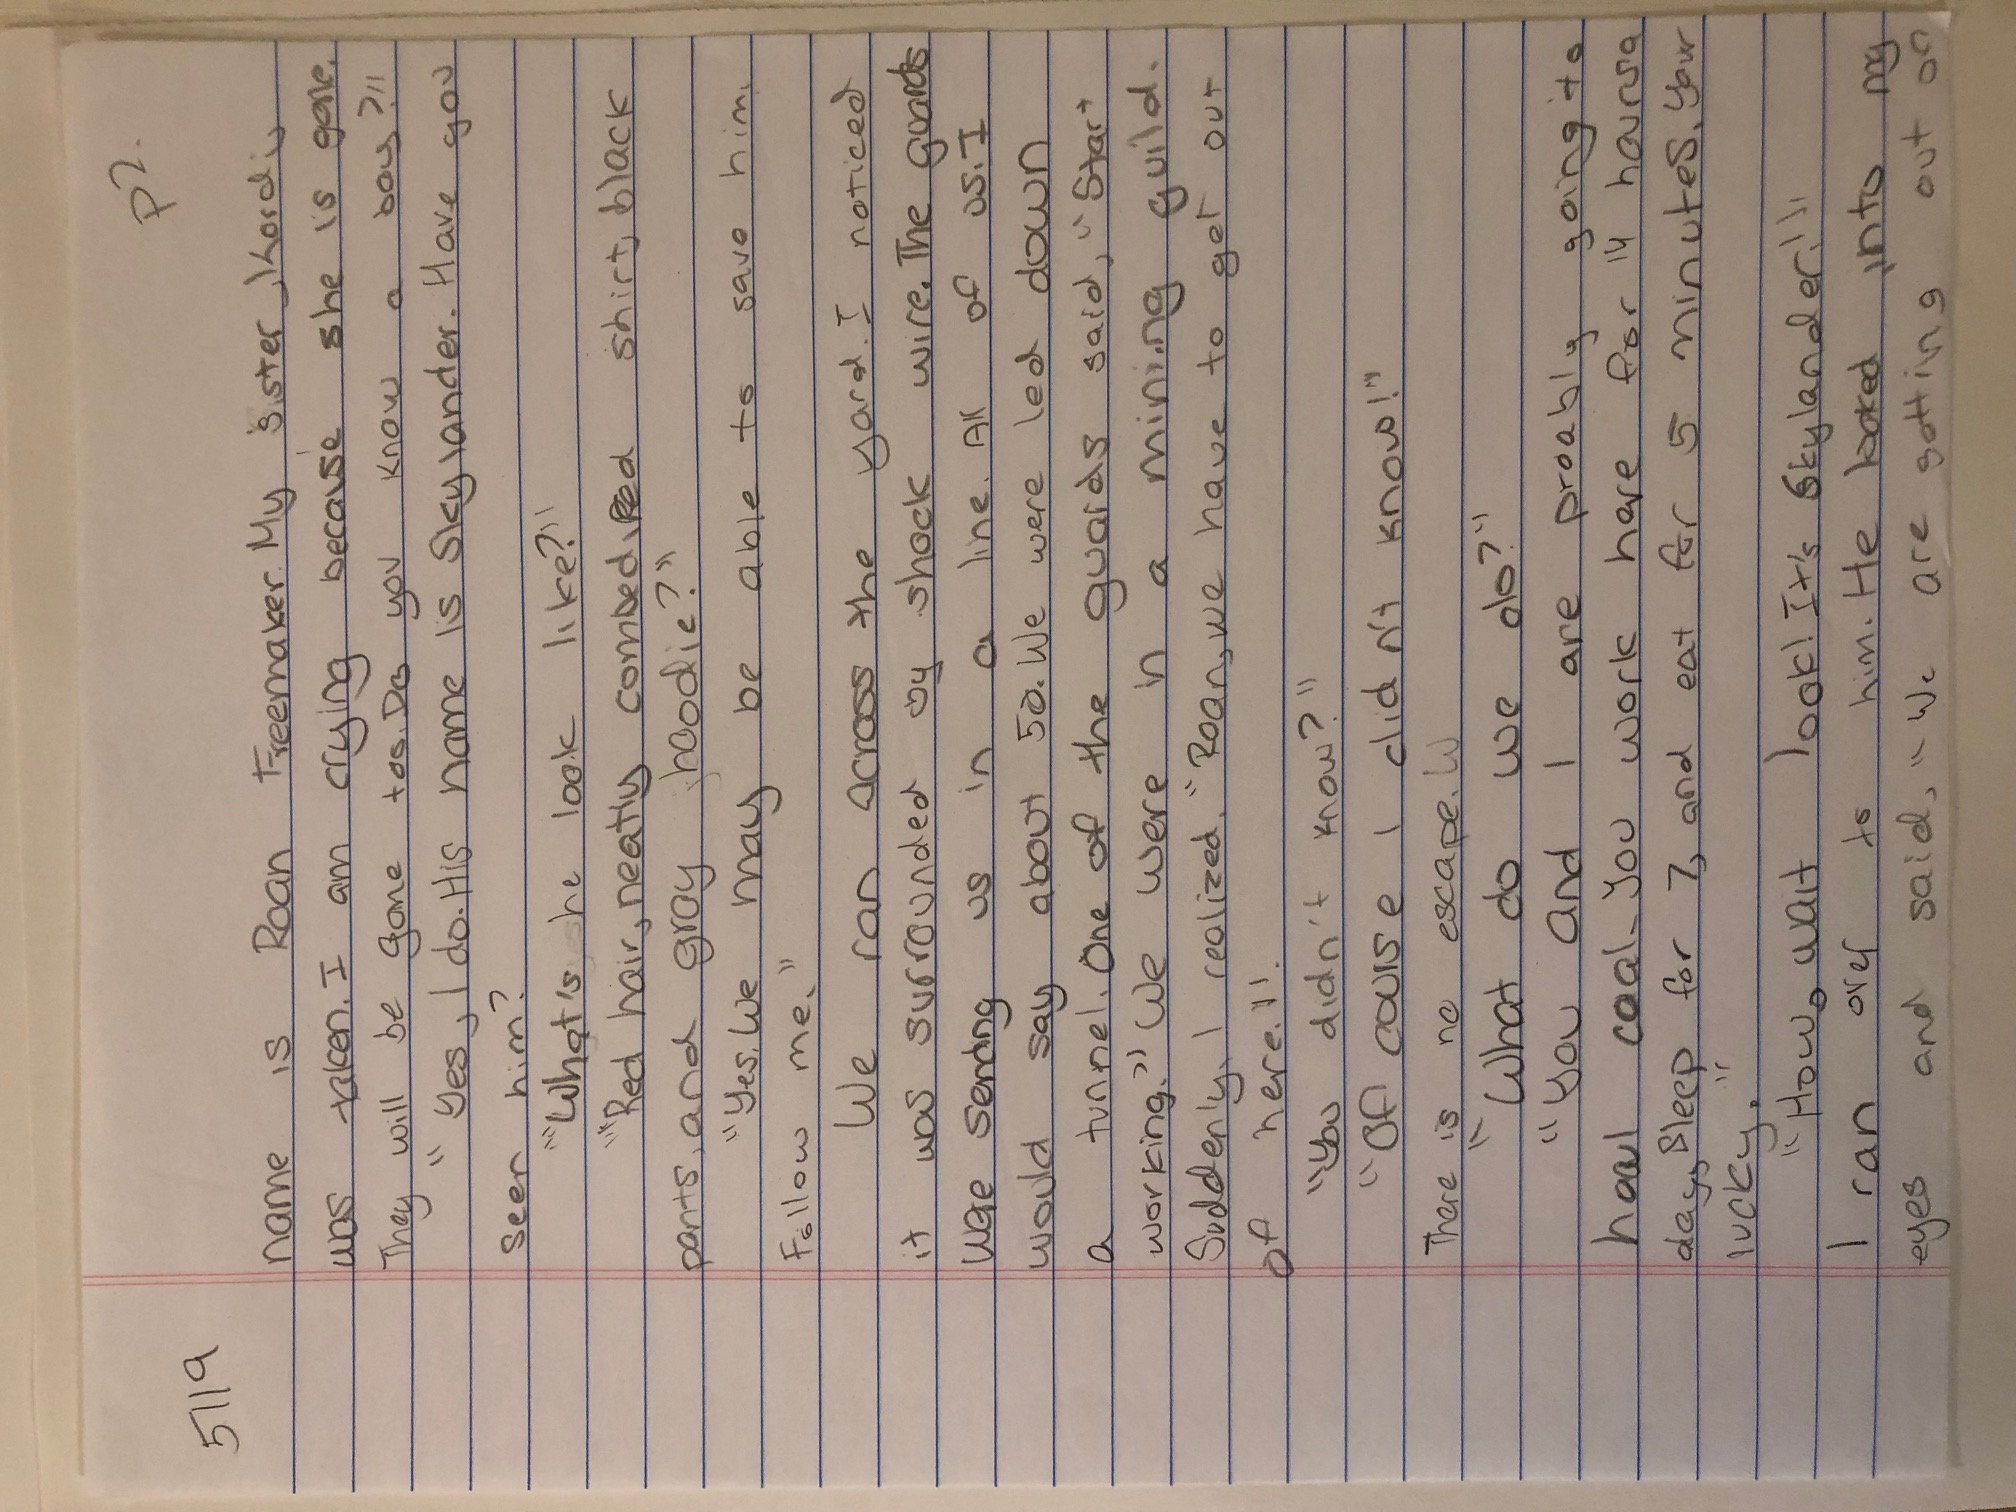 P2.
5119
name is Roan Freemaker. My sister, Kordi,
was taken. I am crying because she is gone.
They will be gone too. Do you know a boy?"
"Yes, I do. His name is Skylander. Have you
seen him?
"What's he look like?"
"Red hair, neatly combed, Red shirt, black
pants, and gray hoodie?"
"Yes. We may be able to save him.
Follow me."
We ran across the yard. I noticed
it was surrounded by shock wire. The guards
were sending us in a line. All of us. I
would say about 50. We were led down
a tunnel. One of the guards said, "Start
working." We were in a mining guild.
Suddenly, I realized. "Roan, we have to get out
of here."
"You didn't know?"
"Of course I didn't know!"
There is no escape. W
"What do we do?"
"You and I are proably going to
haul coal. You work here for 14 hours a
day, Sleep for 7, and eat for 5 minutes. Your
lucky."
"How, wait look! It's Skylander!"
I ran over to him. He looked into my
eyes and said, "We are getting out of